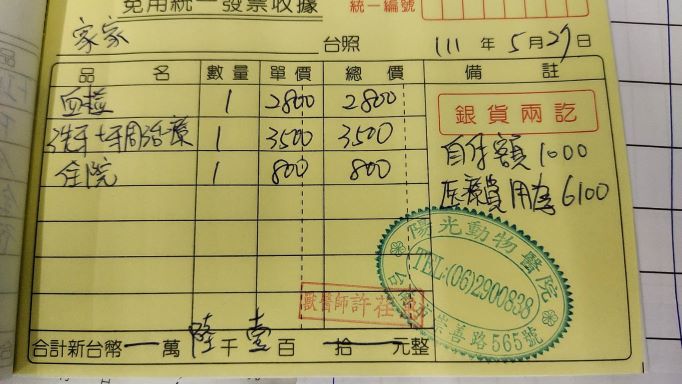 免用統一發票收據
統一編號
家家 台照 111年5月27日
品名 數量 單價 總價 備註
血檢 1 2800 2800
洗牙+牙周治療 1 3500 3500
住院 1 800 800
銀貨兩訖
自付額1000
医療費用為6100
陽光動物醫院
TEL:(06)2900838
崇善路565號
獸醫師許在
合計新台幣 萬陸千壹百拾元整